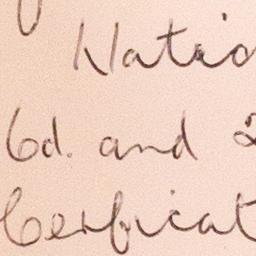 Natio
6d. and 2
Cerficat